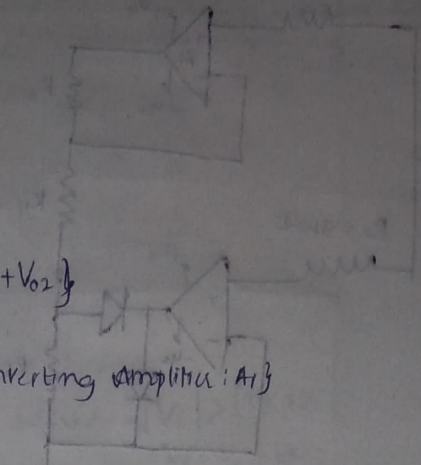 +V02}
nverting Amplifier : A1}